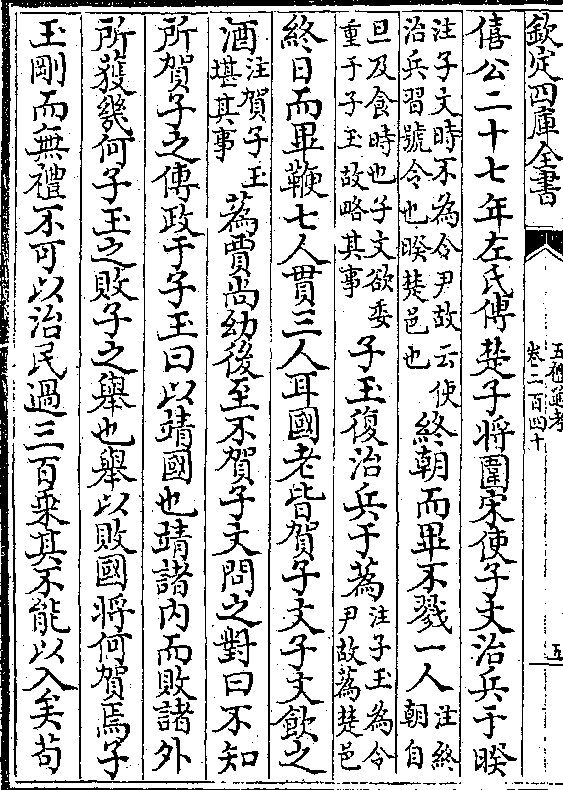 欽定四庫全書
五禮通考
卷二百四十
五
僖公二十七年左氏傳楚子將圍宋使子文治兵于暌
注子文時不為令尹故云使
治兵習號令也暌楚邑也
終朝而畢不戮一人
注終
朝自
旦及食時也子文欲委
重于子玉故略其事
子玉復治兵于蒍
注子玉為令
尹故蒍楚邑
終日而畢鞭七人貫三人耳國老皆賀子文子文飲之
酒
注賀子玉
堪其事
蒍賈尚幼後至不賀子文問之對曰不知
所賀子之傳政于子玉曰以靖國也靖諸內而敗諸外
所獲幾何子玉之敗子之舉也舉以敗國將何賀焉子
玉剛而無禮不可以治民過三百乘其不能以入矣苟